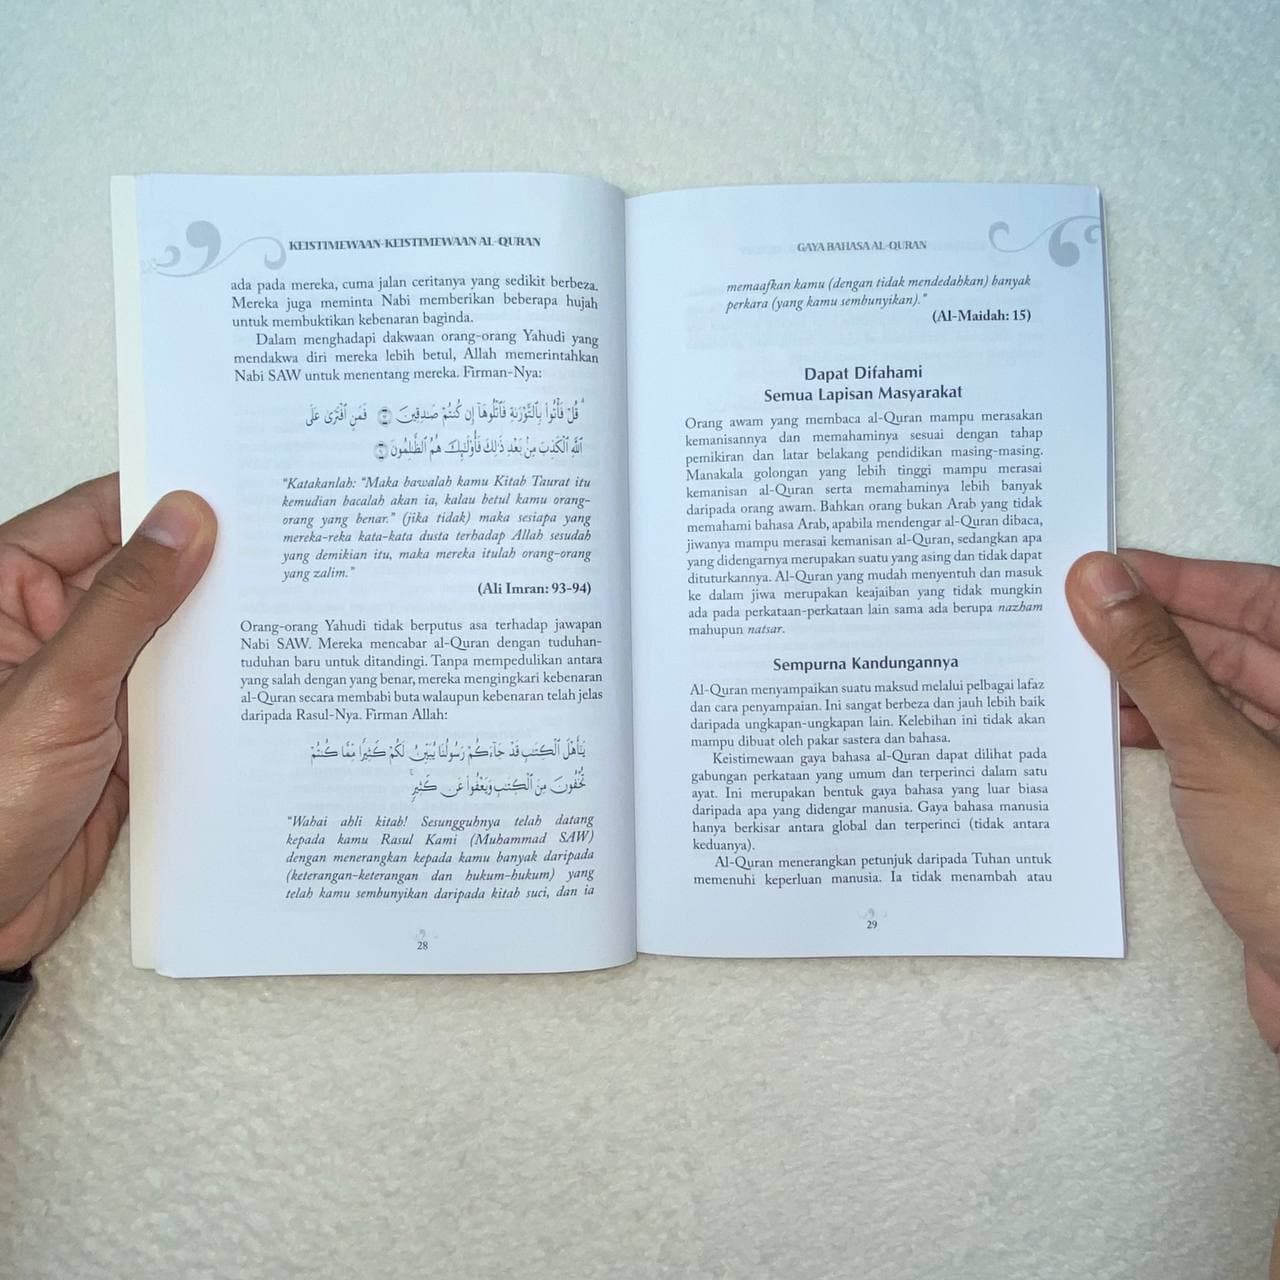 KEISTIMEWAAN-KEISTIMEWAAN AL-QURAN
ada pada mereka, cuma jalan ceritanya yang sedikit berbeza.
Mereka juga meminta Nabi memberikan beberapa hujah
untuk membuktikan kebenaran baginda.
Dalam menghadapi dakwaan orang-orang Yahudi yang
mendakwa diri mereka lebih betul, Allah memerintahkan
Nabi SAW untuk menentang mereka. Firman-Nya:
قُلْ فَأْتُوا۟ بِٱلتَّوْرَىٰةِ فَٱتْلُوهَآ إِن كُنتُمْ صَـٰدِقِينَ ﴿٩٣﴾ فَمَنِ ٱفْتَرَىٰ عَلَى
ٱللَّهِ ٱلْكَذِبَ مِنۢ بَعْدِ ذَٰلِكَ فَأُو۟لَـٰٓئِكَ هُمُ ٱلظَّـٰلِمُونَ ﴿٩٤﴾
"Katakanlah: "Maka bawalah kamu Kitab Taurat itu
kemudian bacalah akan ia, kalau betul kamu orang-
orang yang benar." (jika tidak) maka sesiapa yang
mereka-reka kata-kata dusta terhadap Allah sesudah
yang demikian itu, maka mereka itulah orang-orang
yang zalim."
(Ali Imran: 93-94)
Orang-orang Yahudi tidak berputus asa terhadap jawapan
Nabi SAW. Mereka mencabar al-Quran dengan tuduhan-
tuduhan baru untuk ditandingi. Tanpa mempedulikan antara
yang salah dengan yang benar, mereka mengingkari kebenaran
al-Quran secara membabi buta walaupun kebenaran telah jelas
daripada Rasul-Nya. Firman Allah:
يَـٰٓأَهْلَ ٱلْكِتَـٰبِ قَدْ جَآءَكُمْ رَسُولُنَا يُبَيِّنُ لَكُمْ كَثِيرًا مِّمَّا كُنتُمْ
تُخْفُونَ مِنَ ٱلْكِتَـٰبِ وَيَعْفُوا۟ عَن كَثِيرٍ ۚ
"Wahai ahli kitab! Sesungguhnya telah datang
kepada kamu Rasul Kami (Muhammad SAW)
dengan menerangkan kepada kamu banyak daripada
(keterangan-keterangan dan hukum-hukum) yang
telah kamu sembunyikan daripada kitab suci, dan ia
28
GAYA BAHASA AL-QURAN
memaafkan kamu (dengan tidak mendedahkan) banyak
perkara (yang kamu sembunyikan)."
(Al-Maidah: 15)
Dapat Difahami
Semua Lapisan Masyarakat
Orang awam yang membaca al-Quran mampu merasakan
kemanisannya dan memahaminya sesuai dengan tahap
pemikiran dan latar belakang pendidikan masing-masing.
Manakala golongan yang lebih tinggi mampu merasai
kemanisan al-Quran serta memahaminya lebih banyak
daripada orang awam. Bahkan orang bukan Arab yang tidak
memahami bahasa Arab, apabila mendengar al-Quran dibaca,
jiwanya mampu merasai kemanisan al-Quran, sedangkan apa
yang didengarnya merupakan suatu yang asing dan tidak dapat
dituturkannya. Al-Quran yang mudah menyentuh dan masuk
ke dalam jiwa merupakan keajaiban yang tidak mungkin
ada pada perkataan-perkataan lain sama ada berupa nazham
mahupun natsar.
Sempurna Kandungannya
Al-Quran menyampaikan suatu maksud melalui pelbagai lafaz
dan cara penyampaian. Ini sangat berbeza dan jauh lebih baik
daripada ungkapan-ungkapan lain. Kelebihan ini tidak akan
mampu dibuat oleh pakar sastera dan bahasa.
Keistimewaan gaya bahasa al-Quran dapat dilihat pada
gabungan perkataan yang umum dan terperinci dalam satu
ayat. Ini merupakan bentuk gaya bahasa yang luar biasa
daripada apa yang didengar manusia. Gaya bahasa manusia
hanya berkisar antara global dan terperinci (tidak antara
keduanya).
Al-Quran menerangkan petunjuk daripada Tuhan untuk
memenuhi keperluan manusia. Ia tidak menambah atau
29